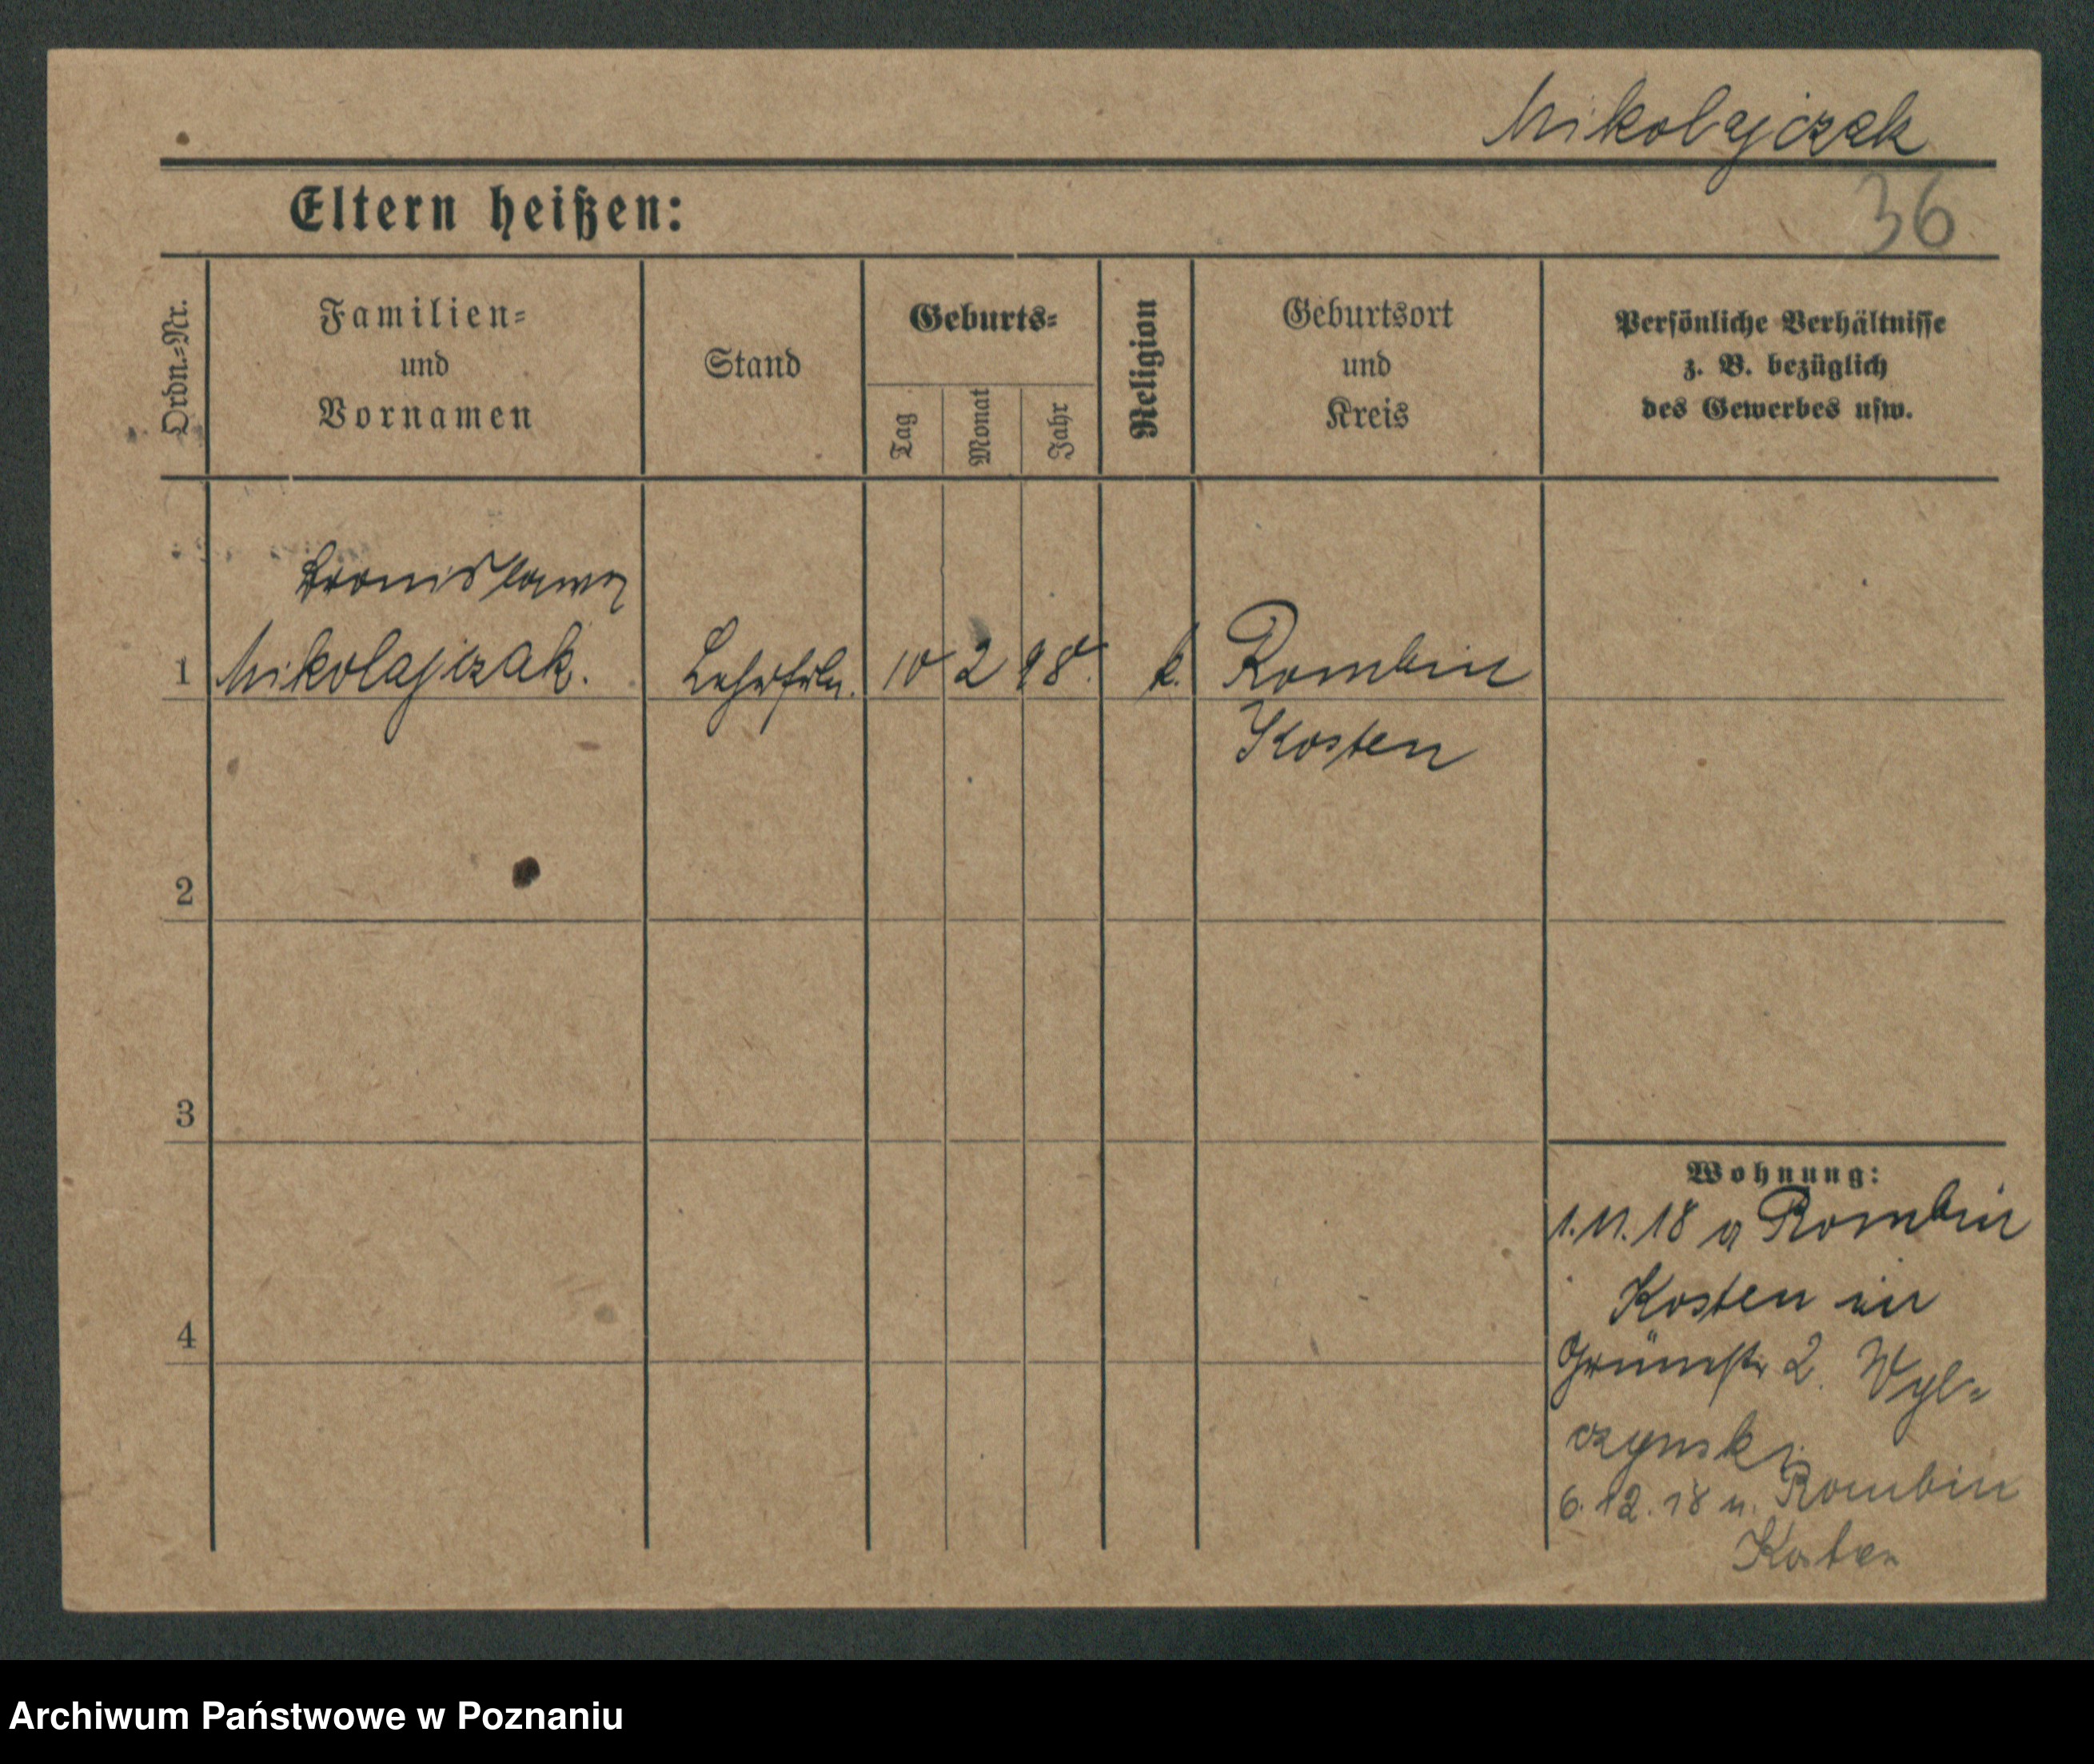 Mikolajczak
Eltern heißen:
36
Ordn.-Nr.
Familien-
und
Vornamen
Stand
Geburts-
Tag
Monat
Jahr
Religion
Geburtsort
und
Kreis
Persönliche Verhältnisse
z. B. bezüglich
des Gewerbes usw.
Bronislawa
1 Mikolajczak. Lehrfrln. 10 2 98. k. Rombin
Kosten
2
3
4
Wohnung:
1.11.18 a Rombin
Kosten in
Grünestr 2. Wyl-
czynski
6.12.18 n. Rombin
Kosten
Archiwum Państwowe w Poznaniu